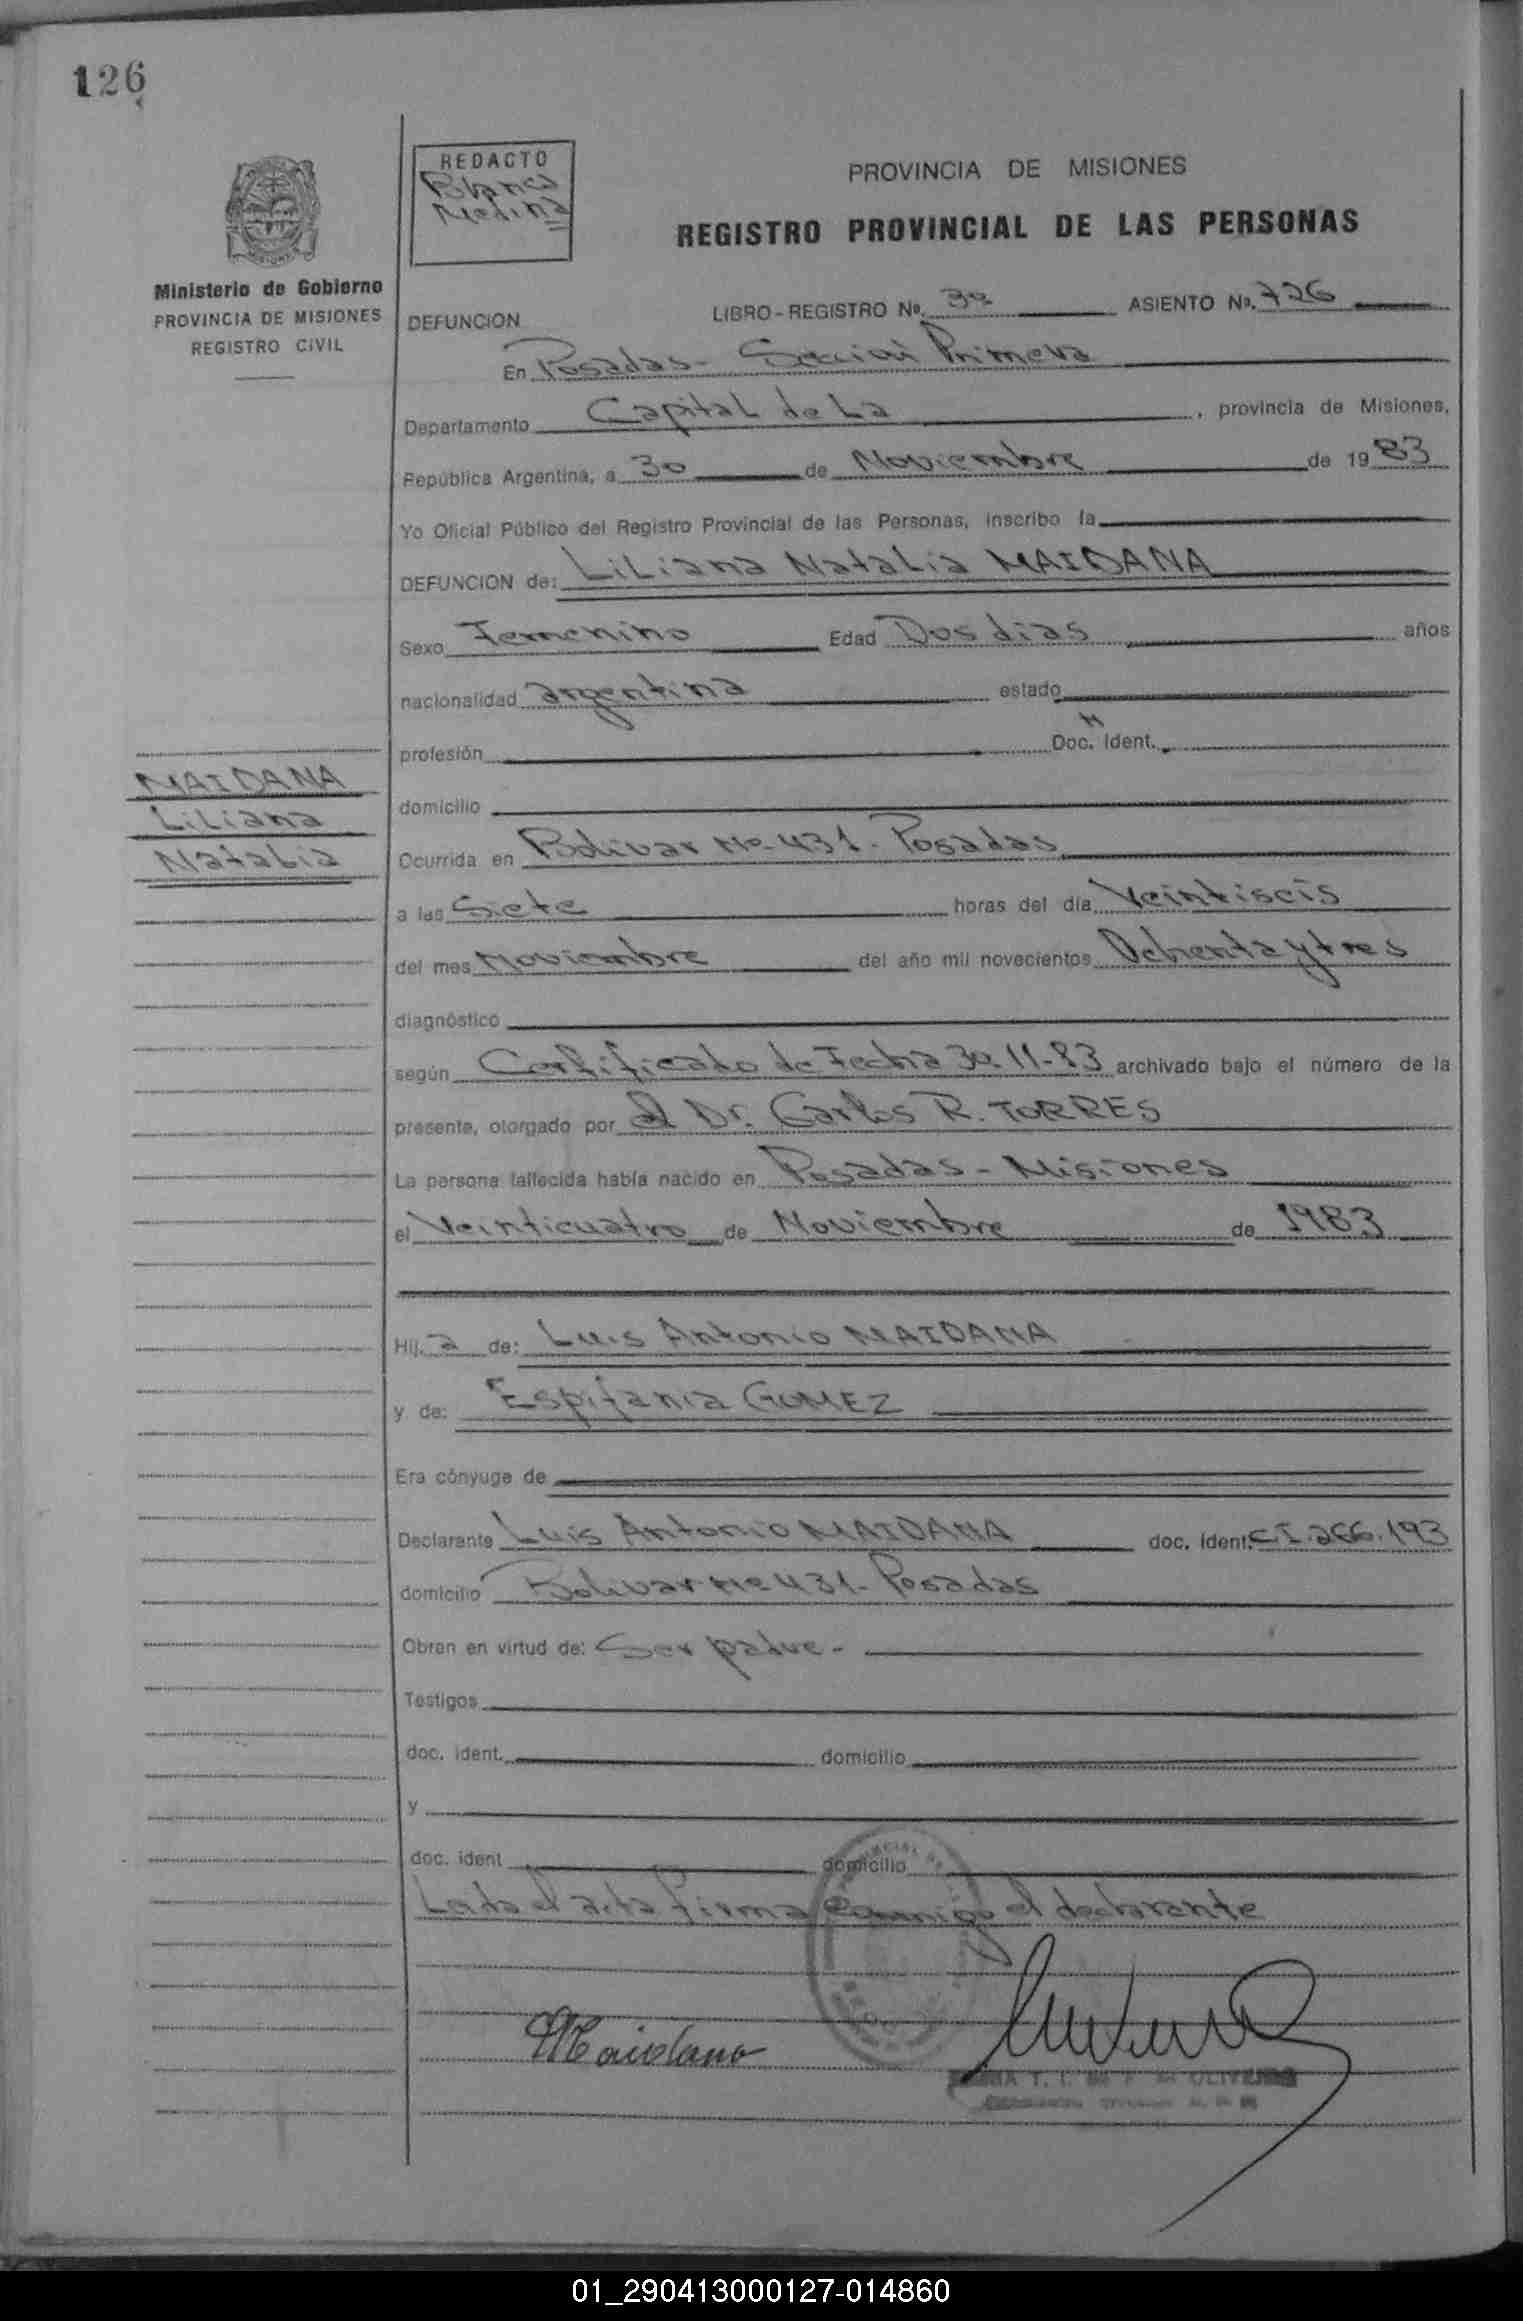 126
REDACTO
Blanca
Medina
Ministerio de Gobierno
PROVINCIA DE MISIONES
REGISTRO CIVIL
PROVINCIA DE MISIONES
REGISTRO PROVINCIAL DE LAS PERSONAS
DEFUNCION LIBRO - REGISTRO Nº. 3º ASIENTO Nº. 726
En Posadas - Sección Primera
Departamento Capital de La , provincia de Misiones,
República Argentina, a 30 de Noviembre de 1983
Yo Oficial Público del Registro Provincial de las Personas, inscribo la
DEFUNCION de: Liliana Natalia MAIDANA
Sexo Femenino Edad Dos dias años
nacionalidad argentina estado
profesión Doc. Ident.
domicilio
MAIDANA
Liliana
Natalia
Ocurrida en Bolivar Nº 431 - Posadas
a las Siete horas del día Veintiseis
del mes Noviembre del año mil novecientos Ochenta y tres
diagnóstico
según Certificado de Fecha 30-11-83 archivado bajo el número de la
presente, otorgado por el Dr. Carlos R. TORRES
La persona fallecida había nacido en Posadas - Misiones
el Veinticuatro de Noviembre de 1983
Hij a de: Luis Antonio MAIDANA
y de: Espifania GOMEZ
Era cónyuge de
Declarante Luis Antonio MAIDANA doc. ident. C.I. 266.193
domicilio Bolivar Nº 431 - Posadas
Obran en virtud de: Ser padre -
Testigos
doc. ident. domicilio
y
doc. ident domicilio
Leida el acta firma conmigo el declarante
Maidana
OLIVEIRA
01_290413000127-014860